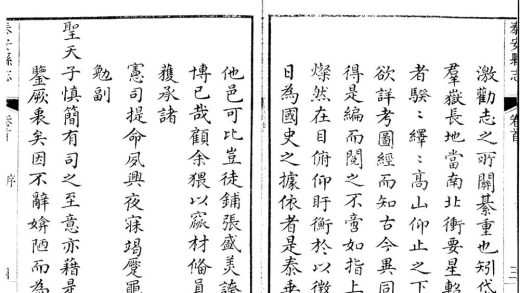 泰安縣志
卷首
三
激勸志之所關綦重也矧岱
羣嶽長地當南北衝要星軺
者騤〻繹〻高山仰止之下
欲詳考圖經而知古今異同
得是編而閱之不啻如指上
燦然在目俯仰盱衡於以徴
日為國史之據依者是泰
他邑可比豈徒鋪張盛美誇
博已哉顧余猥以窳材備員
獲承諸
憲司提命夙興夜寐竭蹷黽
勉副
聖天子慎簡有司之至意亦藉是
鑒厥衷矣因不辭媕陋而為
泰安縣志
卷首
序